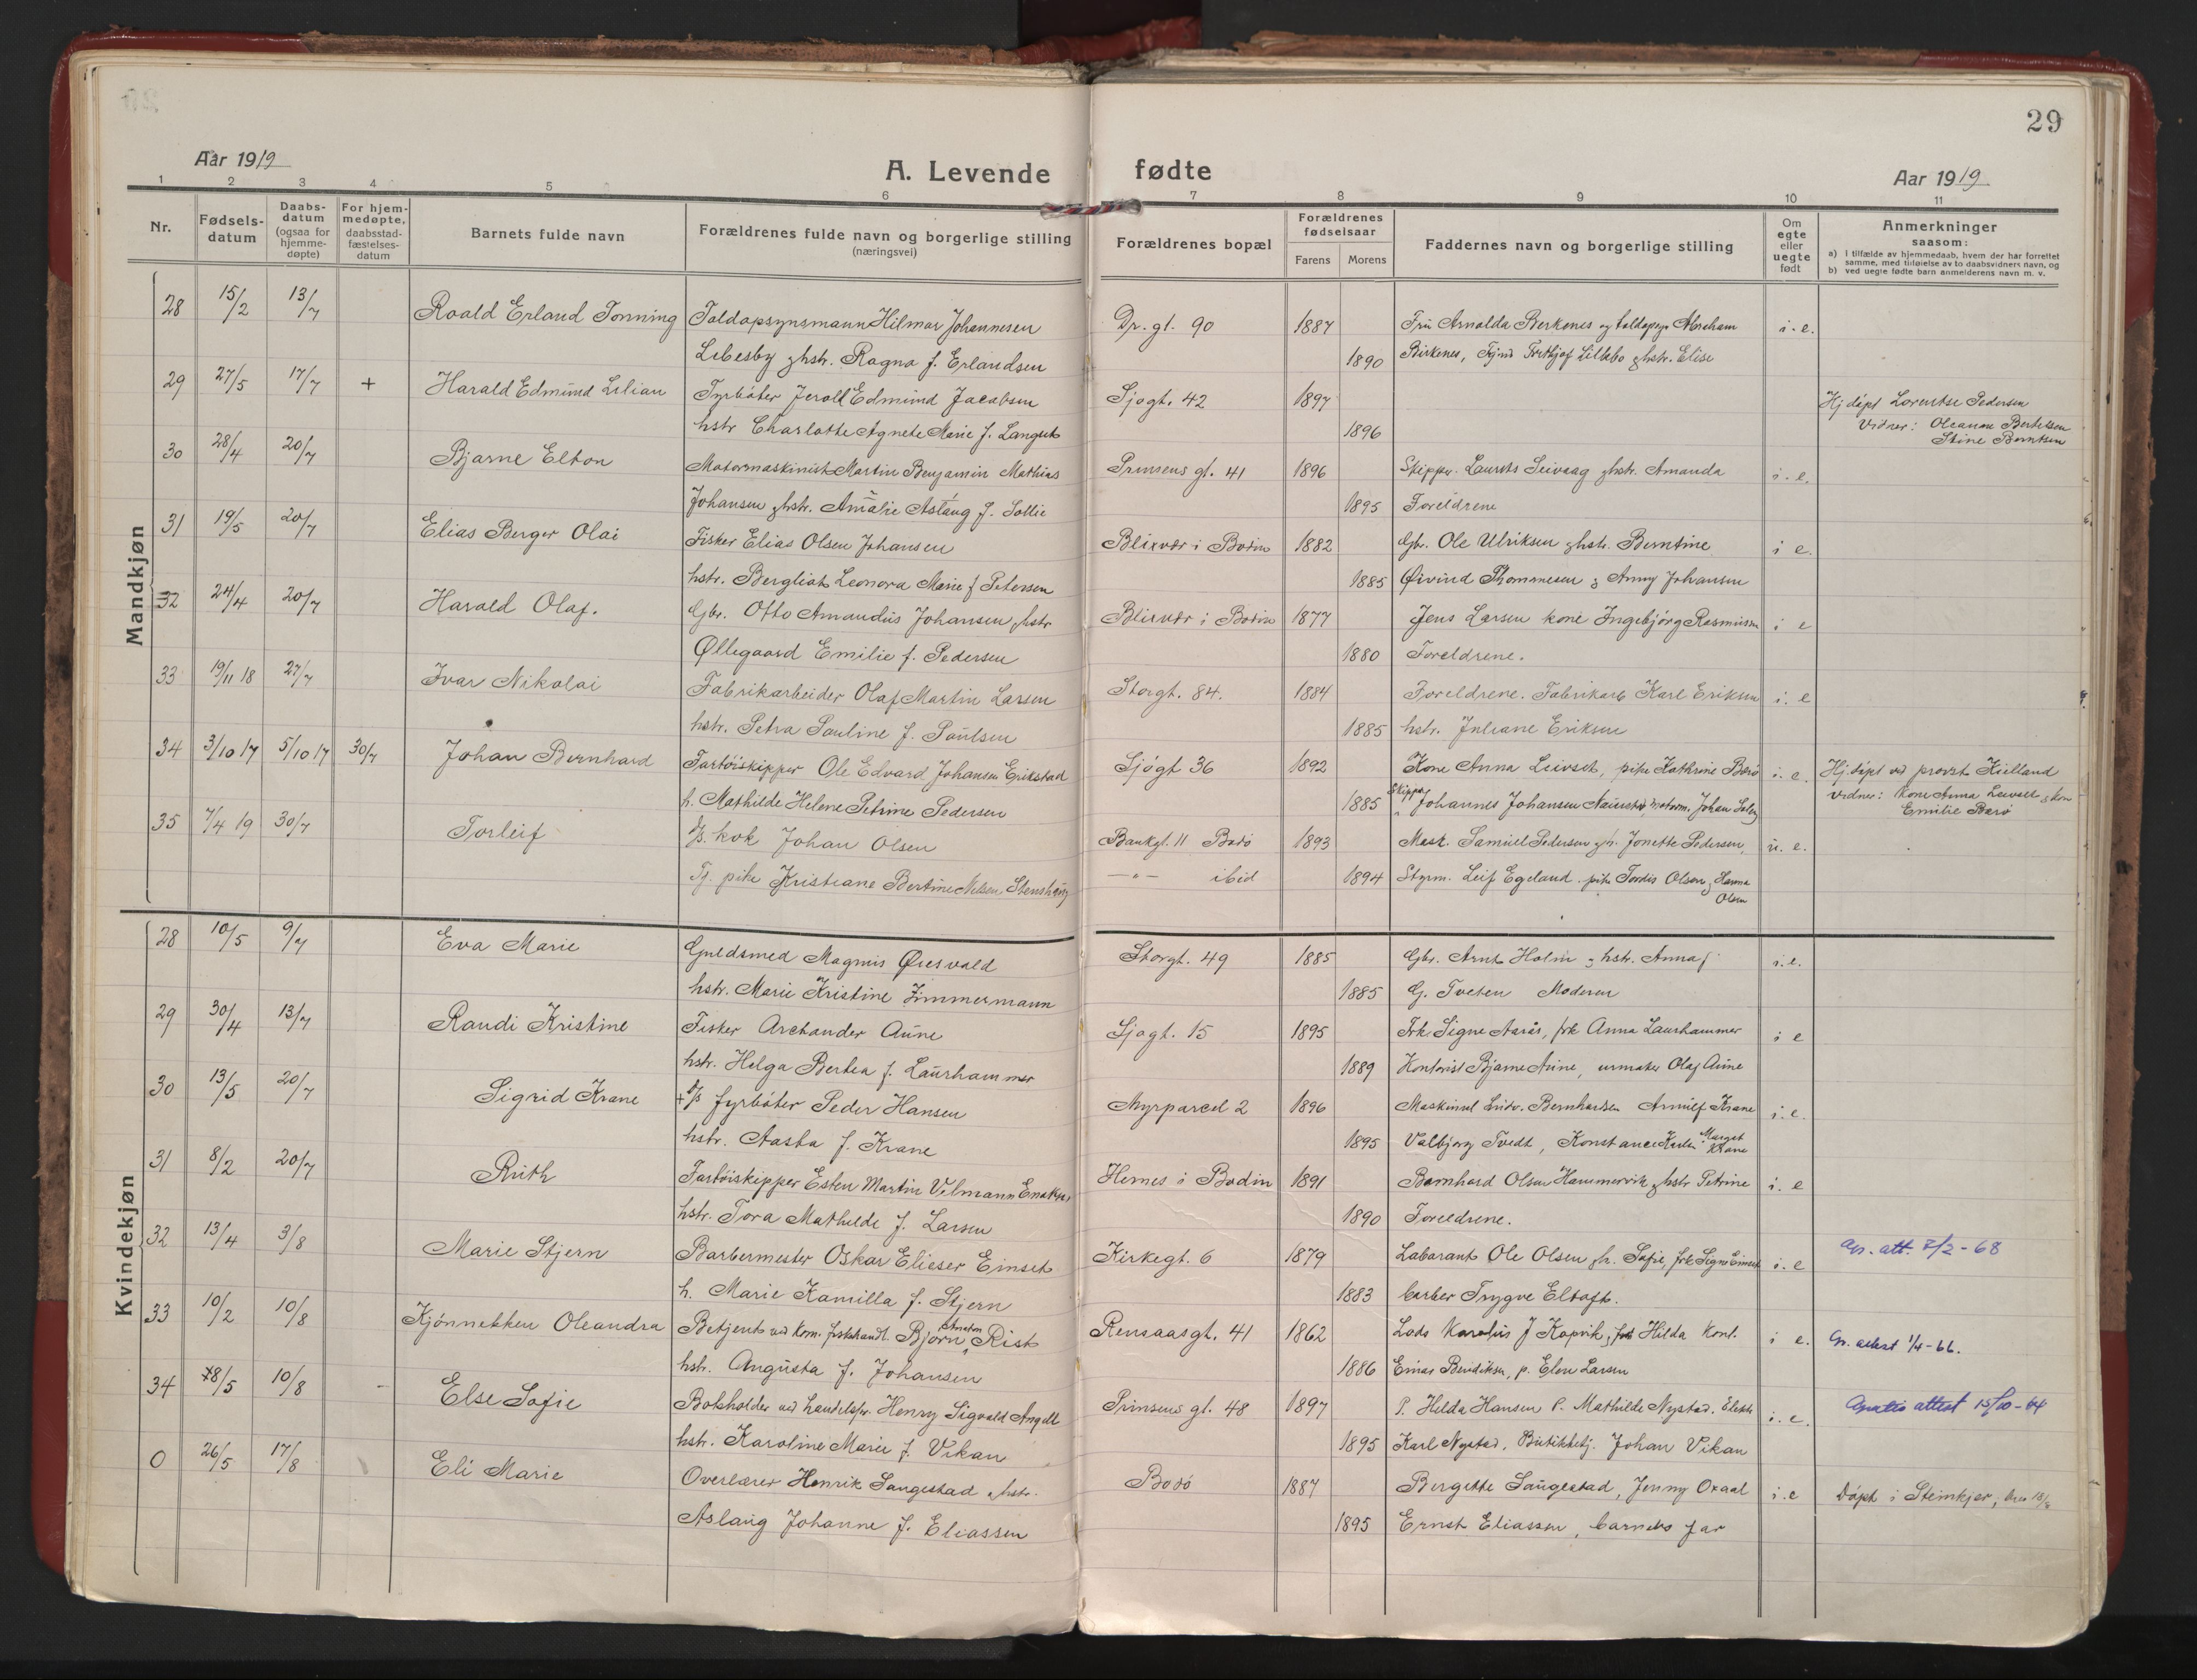 29
Aar 1919
A. Levende fødte
Aar 1919
1 2 3 4 5 6 7 8 9 10 11
Nr.
Fødsels-
datum
Daabs-
datum
(ogsaa for
hjemme-
døpte)
For hjem-
medøpte,
daabsstad-
fæstelses-
datum
Barnets fulde navn
Forældrenes fulde navn og borgerlige stilling
(næringsvei)
Forældrenes bopæl
Forældrenes
fødselsaar
Farens Morens
Faddernes navn og borgerlige stilling
Om
egte
eller
uegte
født
Anmerkninger
saasom:
a) i tilfælde av hjemmedaab, hvem der har forrettet
samme, med tilføielse av to daabsvidners navn, og
b) ved uegte fødte barn anmelderens navn m. v.
Mandkjøn
28 15/2 13/7 Roald Erland Tonning Toldopsynsmann Hilmar Johannesen Dr. gt. 90 1887 Fru Arnolda Berkenes og toldopsyn Abraham i. e.
Lebesby & hstr. Ragna f. Erlandsen 1890 Birkenes, Fritjof Lillebo & hstr. Elise
29 27/5 17/7 + Harald Edmund Lilian Fyrbøter Jerold Edmund Jacobsen Sjøgt. 42 1897 Hj døpt Lorentse Pedersen
hstr Charlotte Agnete Marie f. Langset 1896 Vidner: Oleanne Bertelsen
Stine Berntsen
30 28/4 20/7 Bjarne Elton Motormaskinist Martin Benjamin Mathias Prinsens gt. 41 1896 Skipper Laurits Seivaag & hstr. Amanda i. e.
Johansen & hstr. Amalie Aslaug f. Sollie 1895 Foreldrene
31 19/5 20/7 Elias Berger Olai Fisker Elias Olsen Johansen Blixvær i Bodin 1882 Gbr. Ole Ulriksen & hstr. Berntine i e.
hstr. Bergliot Leonora Marie f Petersen 1885 Øivind Thommesen & Anny Johansen
32 24/4 20/7 Harald Olaf. Gbr. Otto Amandus Johansen, hstr Blixvær i Bodin 1877 Jens Larsen kone Ingebjørg Rasmussen i e
Øllegaard Emilie f. Pedersen 1880 Foreldrene.
33 19/11 18 27/7 Ivar Nikolai Fabrikarbeider Olaf Martin Larsen Storgt. 84. 1884 Foreldrene. Fabrikarb Karl Eriksen i. e
hstr. Petra Pauline f. Paulsen 1885 hstr. Juliane Eriksen
34 3/10 17 5/10 17 30/7 Johan Bernhard Fartøiskipper Ole Edvard Johansen Erikstad Sjøgt 36 1892 Kone Anna Leivset, pike Kathrine Bærø i. e. Hj. døpt ved provst Kielland
h. Mathilde Helene Petrine Pedersen 1885 Skipper Johannes Johansen, motorm. Johan Vidner: Kone Anna Leivset & kone
Emilie Bærø
35 7/4 19 30/7 Torleif D/S. kok Johan Olsen Bankgt. 11 Bodø 1893 Mask. Samuel Pedersen & h. Jonette Pedersen, u. e.
Tj. pike Kristiane Bertine Nilsen Stenshaug —"— ibid 1894 Styrm. Leif Egeland. pike Tordis Olsen & Hanna
Olsen
Kvindekjøn
28 10/5 9/7 Eva Marie Guldsmed Magnus Øiesvold Storgt. 49 1885 Gbr. Arnt Holm & hstr. Anna f i. e.
hstr. Marie Kristine Zimmermann 1885 G. Tveten Moderen
29 30/4 13/7 Randi Kristine Fisker Archander Aune Sjøgt. 15 1895 Frk Signe Aarås, frk Anna Laurhammer i e
hstr. Helga Bertea f. Laurhammer 1889 Kontorist Bjarne Aune, urmaker Olaf Aune
30 13/5 20/7 Sigrid Krane + D/S fyrbøter Peder Hansen Myrparcel 2 1896 Maskinist Ludv. Bernhardsen Arnulf Krane i. e.
hstr. Aasta f. Krane 1895 Valbjørg Tvedt, Konstance Karlsen Margot
Krane
31 8/2 20/7 Ruth Fartøiskipper Esten Martin Velmann Enoksen Hernes i Bodin 1891 Bernhard Olsen Hammervik & hstr Petrine i. e
hstr. Tora Mathilde f. Larsen 1890 Foreldrene.
32 13/4 3/8 Marie Stjern Barbermester Oskar Elieser Einset Kirkegt. 6 1879 Laborant Ole Olsen & h. Sofie, frk Signe Einset i. e Gr. att. 7/2 - 68
h. Marie Kamilla f. Stjern 1883 barber Trygve Eltoft.
33 10/2 10/8 Kjønnekken Oleandra Betjent ved Kom. fiskehandl. Bjørn Anton Rist Rensaasgt. 41 1862 Lods Karolus J Kopvik, frk Hilda Kont. i e. Gr. attest 1/4 - 66.
hstr. Angusta f. Johansen 1886 Einar Bendiksen, p. Elen Larsen
34 8/5 10/8 Else Sofie Bokholder ved handelsfor. Henry Sigvald Angell Prinsens gt. 48 1897 P. Helda Hansen P. Mathilde Nystad, i. e. Gratis attest 15/10 - 64
hstr. Karoline Marie f. Vikan 1895 Karl Nystad, Butikkbetj. Johan Vikan
0 26/5 17/8 Eli Marie Overlærer Henrik Saugestad & hstr. Bodø 1887 Bergette Saugestad, Jenny Oxaal i. e Døpt i Steinkjer,
Aslaug Johanne f. Eliassen 1895 Ernst Eliassen, barnets far